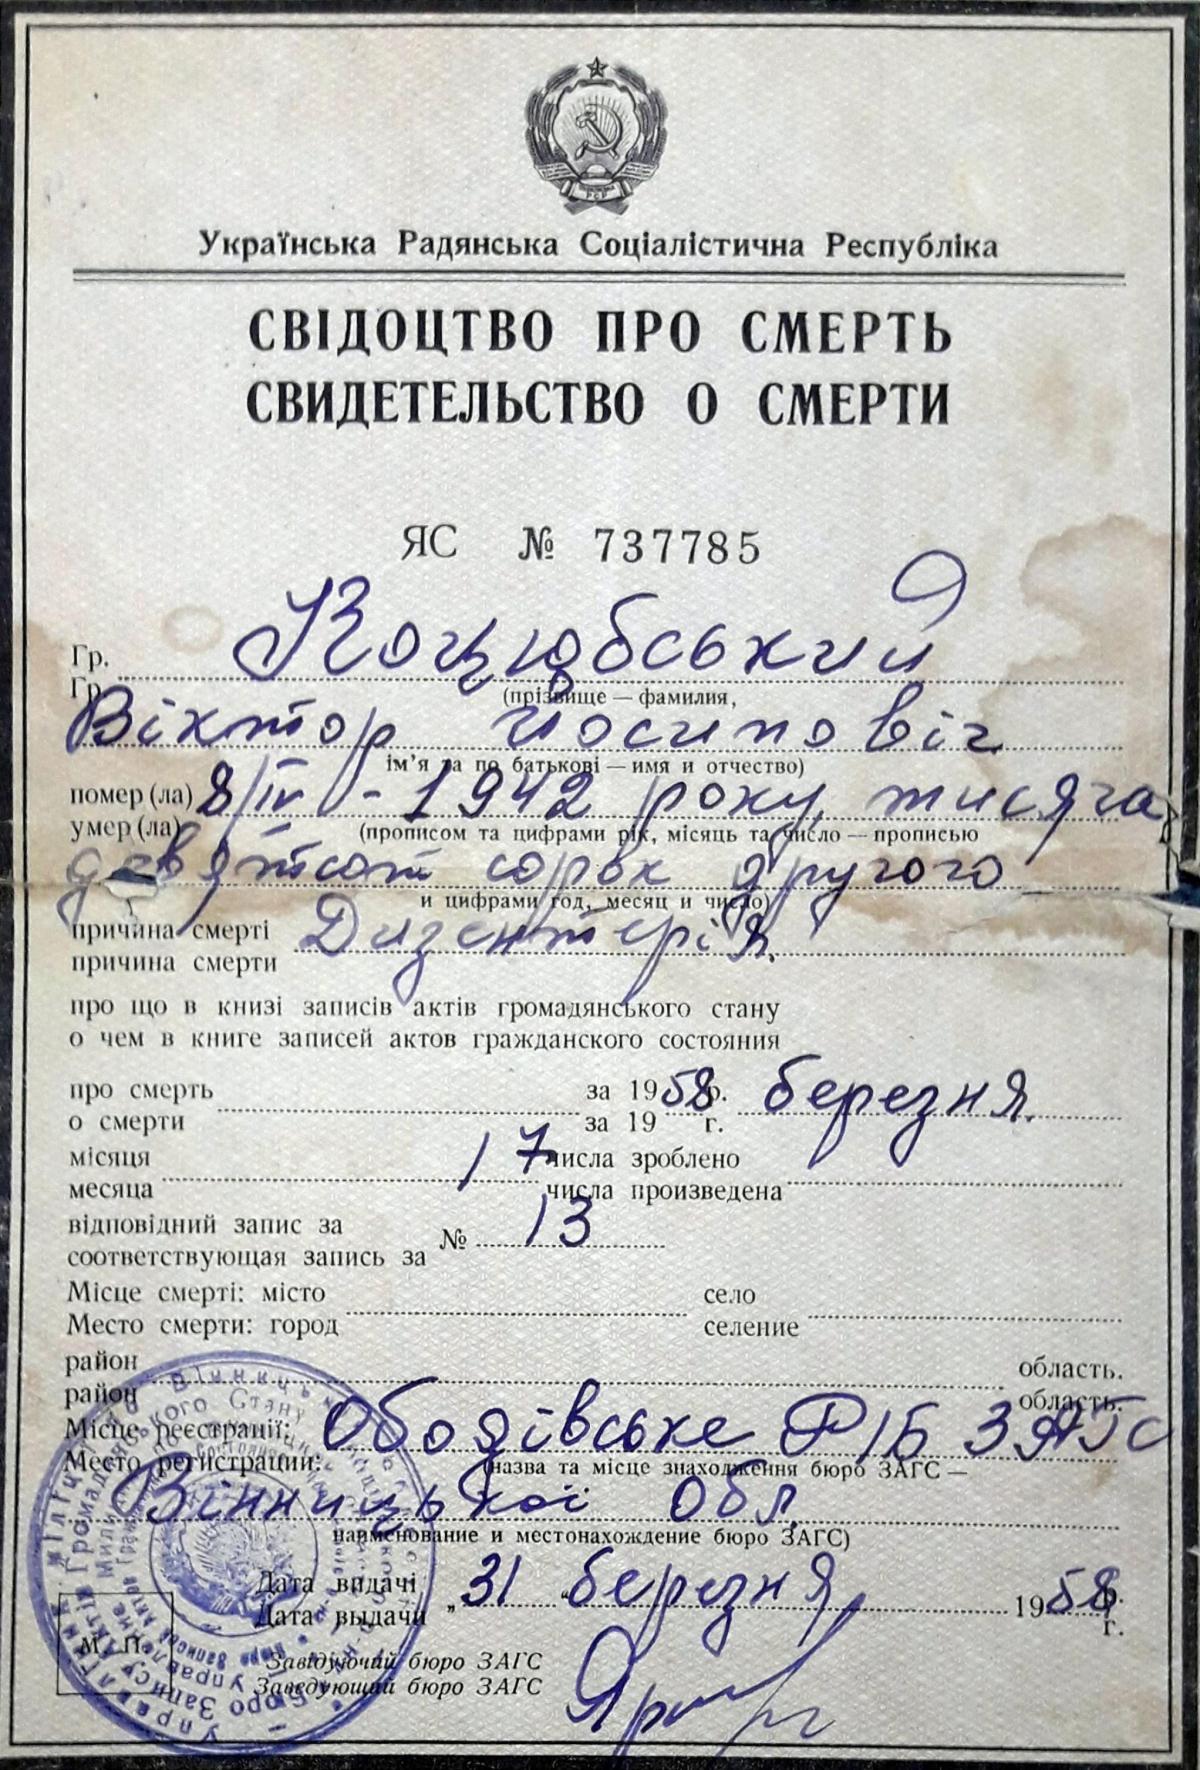 Українська Радянська Соціалістична Республіка
СВІДОЦТВО ПРО СМЕРТЬ
СВИДЕТЕЛЬСТВО О СМЕРТИ
ЯС № 737785
Гр. Коцюбський
Гр.
(прізвище — фамилия,
Віктор Йосипович
ім'я та по батькові — имя и отчество)
помер (ла) 8/IV - 1942 року, тисяча
умер (ла)
(прописом та цифрами рік, місяць та число — прописью
девятсот сорок другого
и цифрами год, месяц и число)
причина смерті Дизентерія.
причина смерти
про що в книзі записів актів громадянського стану
о чем в книге записей актов гражданского состояния
про смерть за 1958 р. березня
о смерти за 19 г.
місяця 17 числа зроблено
месяца числа произведена
відповідний запис за № 13
соответствующая запись за
Місце смерті: місто село
Место смерти: город селение
район область.
район область.
Місце реєстрації: Ободівське Р/Б ЗАГС
Место регистрации:
(назва та місце знаходження бюро ЗАГС —
Вінницької обл.
наименование и местонахождение бюро ЗАГС)
Дата видачі „31“ березня 1958 р.
Дата выдачи г.
М. П.
Завідуючий бюро ЗАГС
Заведующий бюро ЗАГС